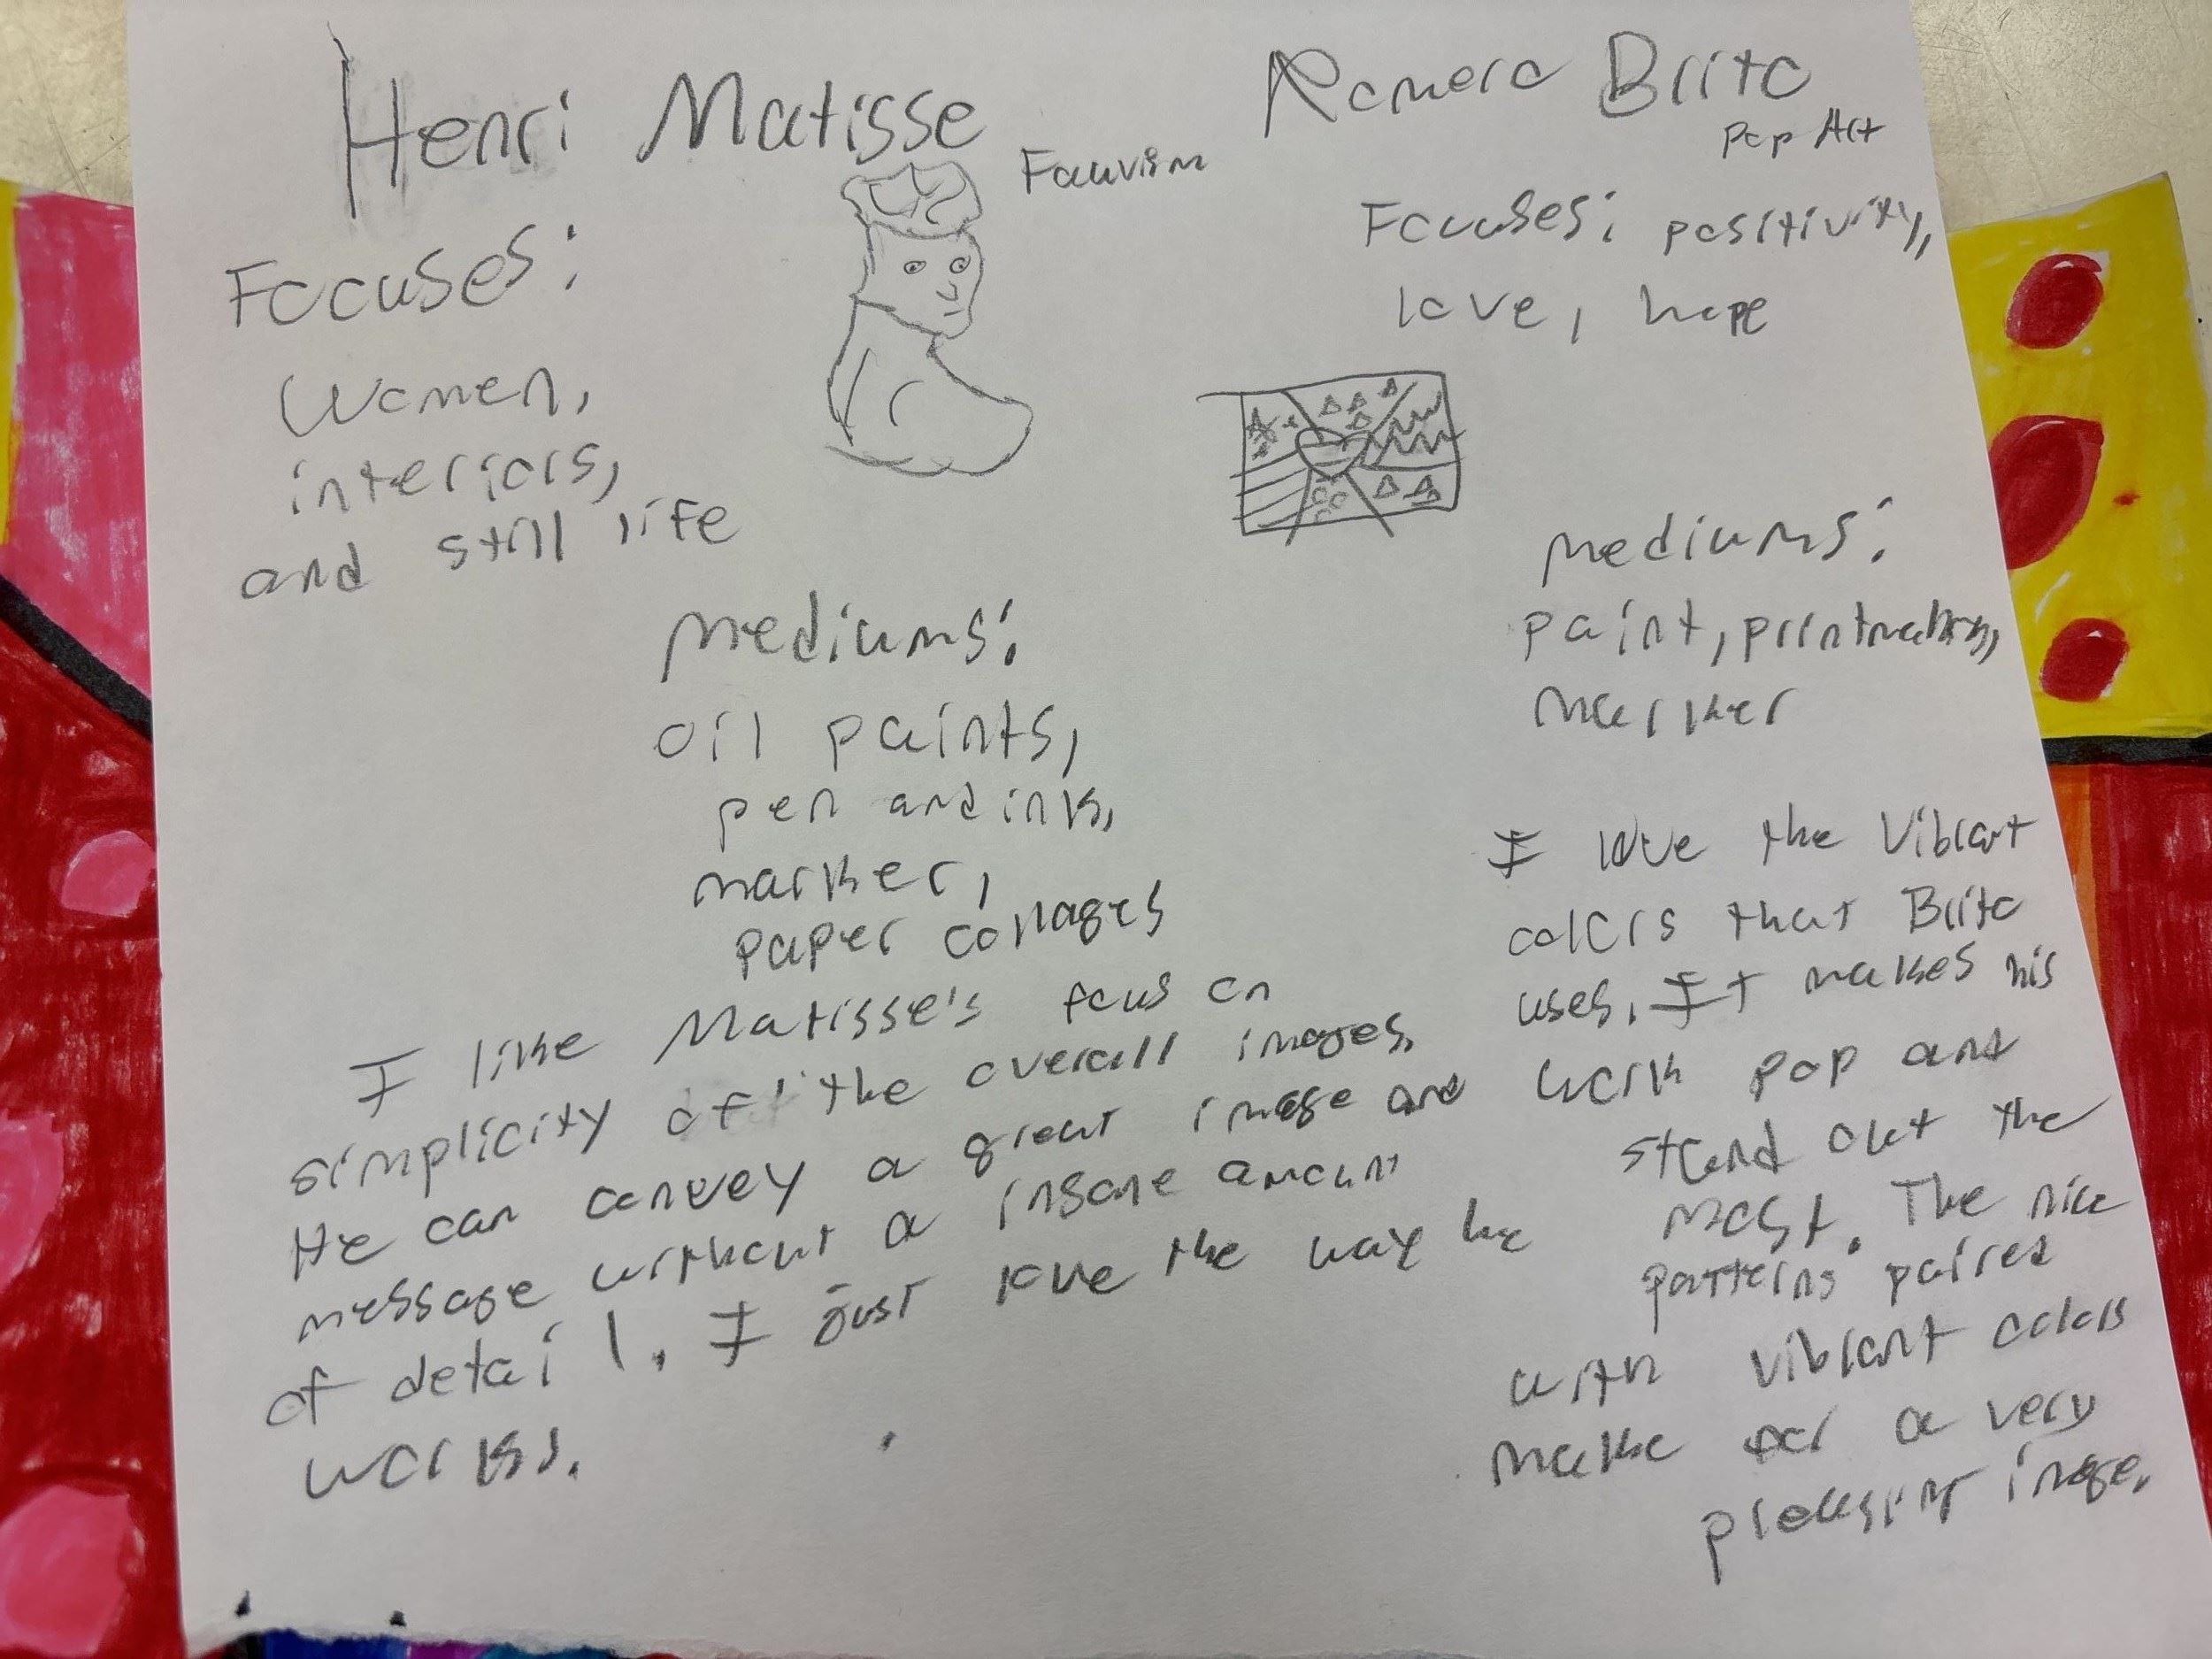 Henri Matisse
Fauvism
Focuses:
Women,
interiors,
and still life
mediums:
oil paints,
pen and ink,
marker,
paper collages
I like Matisse's focus on
simplicity of the overall images.
He can convey a great image and
message without a insane amount
of detail. I just love the way he
works.
Romero Brito
Pop Art
Focuses: positivity,
love, hope
mediums:
paint, printmaking,
marker
I love the vibrant
colors that Brito
uses. It makes his
work pop and
stand out the
most. The nice
patterns paired
with vibrant colors
make for a very
pleasing image.